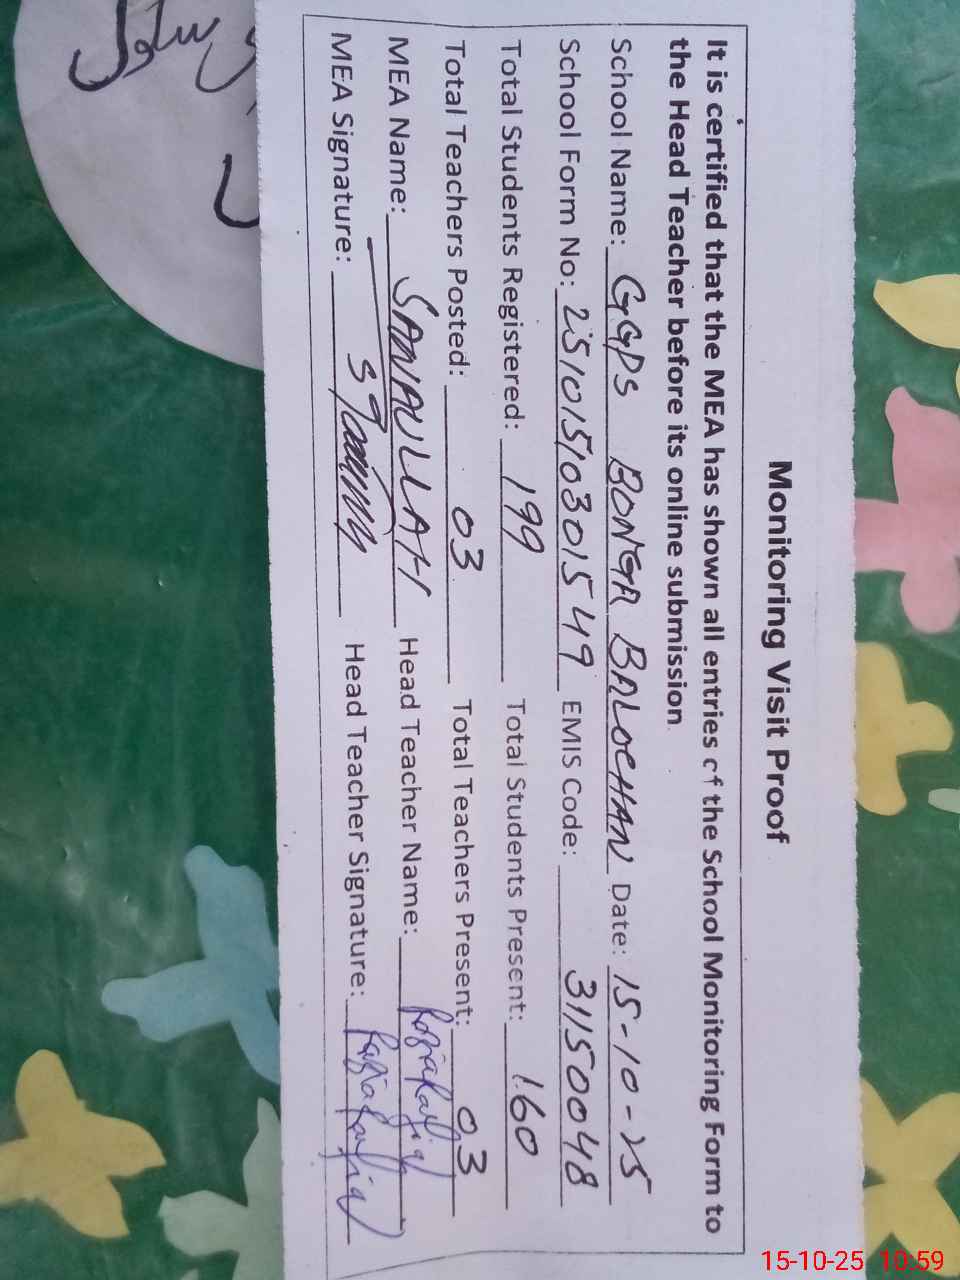 Monitoring Visit Proof
It is certified that the MEA has shown all entries of the School Monitoring Form to
the Head Teacher before its online submission
School Name: GGPS BONGA BALOCHAN Date: 15-10-25
School Form No: 251015103015 49 EMIS Code: 31150048
Total Students Registered: 199 Total Students Present: 160
Total Teachers Posted: 03 Total Teachers Present: 03
MEA Name: SANAULLAH Head Teacher Name:
MEA Signature: Head Teacher Signature:
15-10-25 10:59